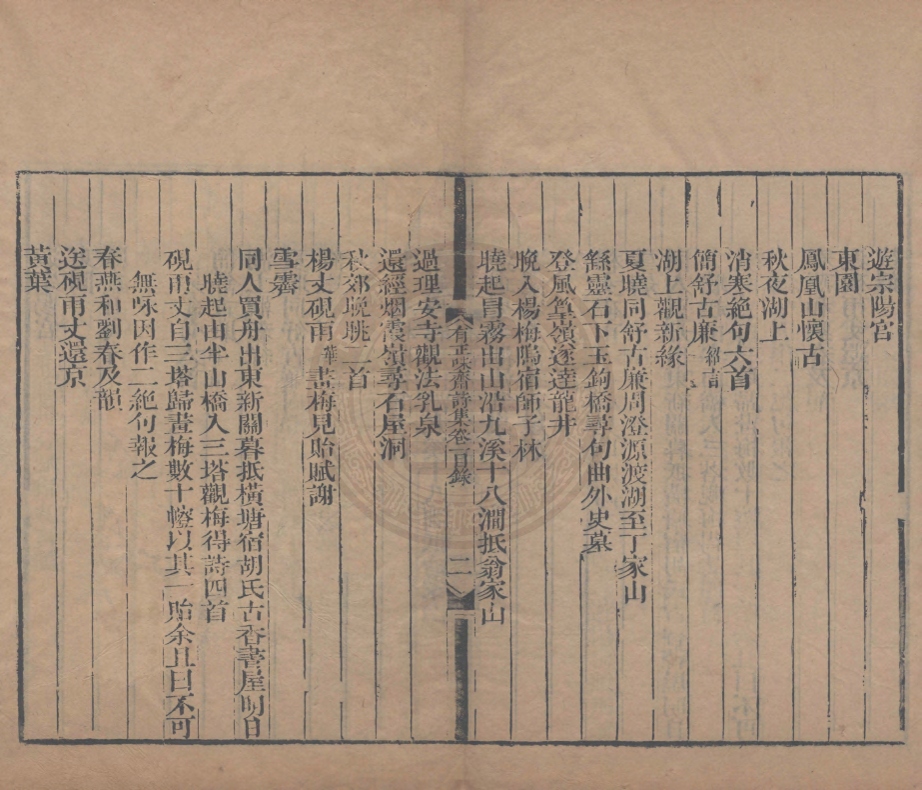 遊宗陽宮
東園
鳳凰山懷古
秋夜湖上
消寒絕句六首
簡舒古廉
湖上觀新綠
夏曉同舒古廉周澄源渡湖至丁家山
繇靈石下玉鉤橋尋句曲外史墓
登風篁嶺遂達龍井
晚入楊梅隖宿師子林
曉起冒霧出山沿九溪十八澗抵翁家山
有正味齋詩集卷一目錄 二
過理安寺觀法乳泉
還經烟霞嶺尋石屋洞
秋郊晚眺二首
楊丈硯雨畫梅見貽賦謝
雪霽
同人買舟出東新關暮抵橫塘宿胡氏古香書屋明日
曉起由半山橋入三塔觀梅得詩四首
硯雨丈自三塔歸畫梅數十幀以其一貽余且曰不可
無咏因作二絕句報之
春燕和劉春及韻
送硯雨丈還京
黃葉